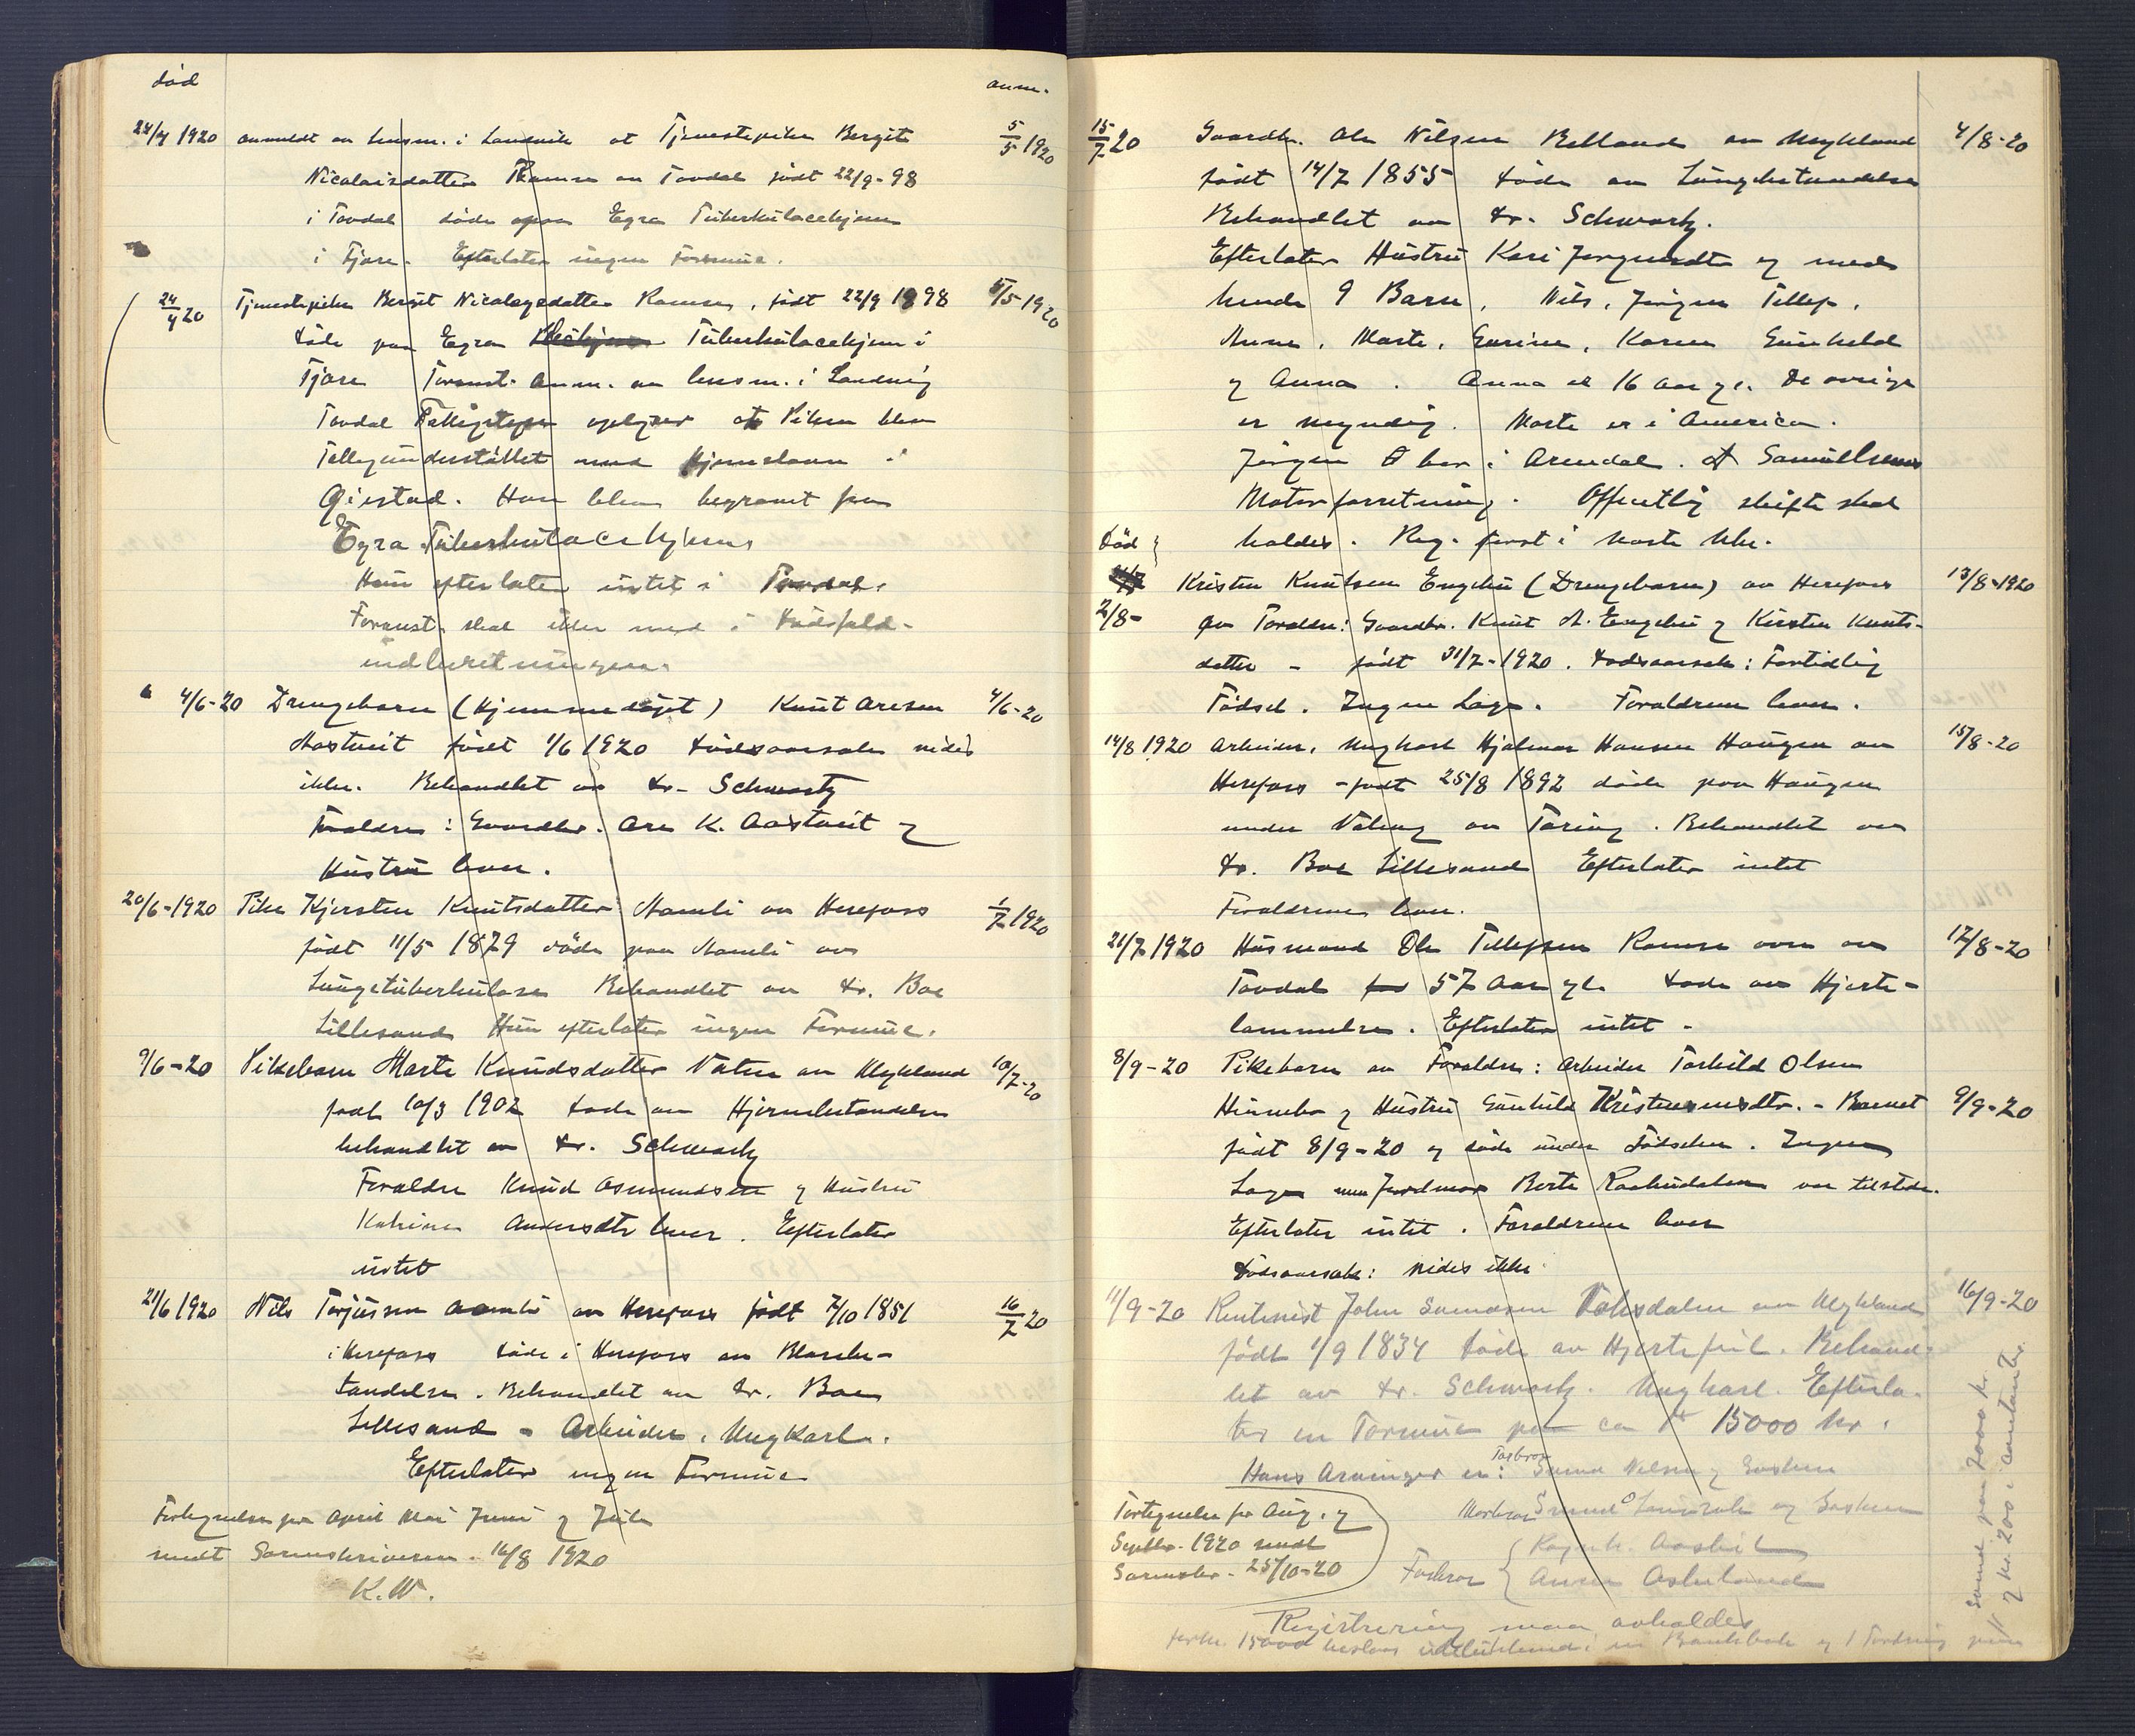 død anm.
24/4 1920 anmeldt av lensm. i Landvik at Tjenestepike Bergit 5/5 1920
Nicolaisdatter Ramse av Tovdal født 22/9-98
i Tovdal døde paa Egra Tuberkulosehjem
i Fjære. Efterlater ingen Formue.
24/4 20 Tjenestepike Bergit Nicolaysdatter Ramse, født 22/9 1898 5/5-1920
døde paa Egra Tuberkulosehjem i
Fjære Foranst. anm. av lensm. i Landvig
Tovdal oplyser at Piken blev
Fattigunderstøttet med Hjemstavn i
Gjestad. Hun blev begravet fra
Egra Tuberkulosehjem
Hun efterlater intet i Tovdal.
Foranst. skal ikke med i Dødsfald-
indberetningen.
4/6-20 Drengebarn (Hjemmedøpt) Knut Aresen 4/6-20
Aastveit født 1/6 1920 Dødsaarsak vides
ikke. Behandlet av Dr. Schwartz
Foraldre: Gaardbr. Are K. Aastveit og
Hustru lever.
20/6-1920 Pike Kjersten Knutsdatter Aamli av Herefoss 1/7 1920
født 11/5 1879 døde paa Aamli av
Lungetuberkulose Behandlet av Dr. Boe
Lillesand Hun efterlater ingen Formue.
9/6-20 Pikebarn Marte Knudsdatter Vatne av Mykland 10/7-20
født 10/3 1902 døde av Hjernebetændelse
behandlet av Dr. Schwartz
Foraldre Knud Asmundsen og Hustru
Katrine Andersdtr lever. Efterlater
intet
21/6 1920 Nils Terjussen Aamli av Herefoss født 7/10 1851 16/7 20
i Herefoss døde i Herefoss av Blære-
tændelse. Behandlet av Dr. Boe
Lillesand - Arbeider, Ungkarl.
Efterlater ingen Formue
Fortegnelse for April Mai Juni og Juli
sendt Sorenskriveren. 16/8 1920
K.W.
15/7 20 Gaardbr. Ole Nilsen Belland av Mykland 4/8-20
født 14/7 1855 døde av Lungebetændelse
Behandlet av Dr. Schwartz.
Efterlater Hustru Kari Jørgensdtr og med
hende 9 Barn. Nils, Jørgen Tellef,
Anne, Marte, Gurine, Karen Gunhild
og Anna. Anna er 16 aar gl. De øvrige
er myndig. Marte er i America.
Jørgen bor i Arendal. Samuelsens
Motorforretning. Offentlig skifte skal
holdes. Reg. først i næste Uke.
Død
2/8- Kristen Knutsen Engebu (Drengebarn) av Herefoss 13/8-1920
av Foraldre: Gaardbr. Knut A. Engebu og Kirsten Knuts-
datter - født 31/7-1920. Dødsaarsak: Fortidlig
Fødsel. Ingen Læge. Foraldrene lever.
14/8 1920 Arbeider, Ungkarl Hjalmar Hansen Haugen av 15/8-20
Herefoss - født 25/8 1892 døde paa Haugen
av Tæring. Behandlet av
Dr. Boe Lillesand Efterlater intet
Foraldrene lever.
21/7 1920 Husmand Ole Tellefsen Ramse øvre av 12/8-20
Tovdal 57 Aar gl. døde av Hjerte-
lammelse. Efterlater intet -
8/9-20 Pikebarn av Foraldre: Arbeider Torkild Olsen
Hinnebu og Hustru Gunhild Kristensensdtr. - Barnet 9/9-20
født 8/9-20 og døde under Fødselen. Ingen
Læge men Jordmor Berte var tilstede.
Efterlater intet. Foraldrene lever
Dødsaarsak: vides ikke.
11/9-20 John av Mykland 16/9-20
født 1/9 1834 døde av Hjertefeil. Behand-
let av Dr. Schwartz. Ungkarl. Efterla-
ter en Formue paa ca 15000 kr.
Hans Arvinger er: Farbror
Morbror og Søsken
Fortegnelse for Aug. og
Septbr. 1920 sendt
Sorenskr. 25/10-20
Registrering maa avholdes
2000 kr.
og kr. 200 i contanter